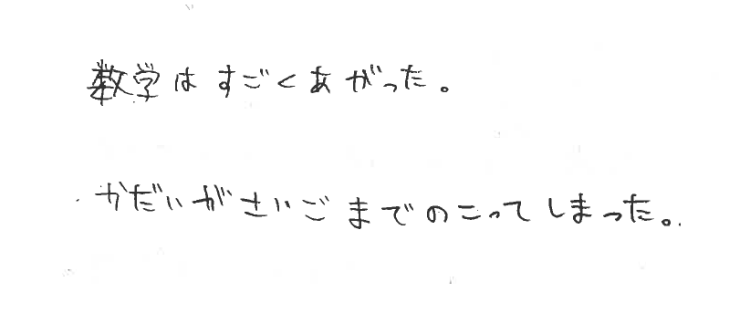 数学はすごくあがった。
かだいがさいごまでのこってしまった。